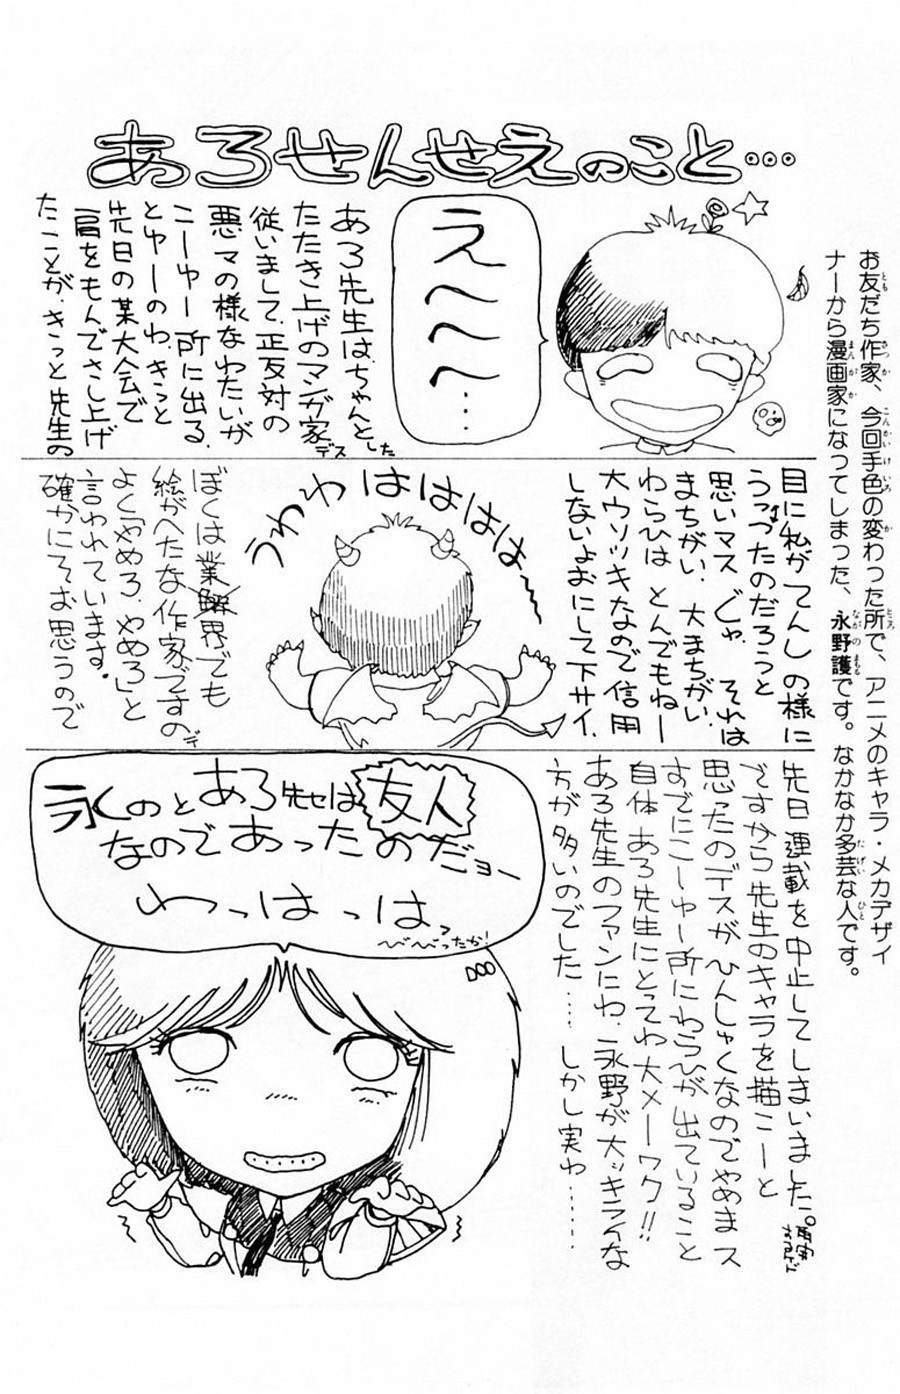 お友だち作家、今回手色の変わった所で、アニメのキャラ・メカデザイ
ナーから漫画家になってしまった、永野護です。なかなか多芸な人です。
あろせんせえのこと…
え〜〜〜……
あろ先生は、ちゃんとした
たたき上げのマンガ家デス
従いまして、正反対の
悪マの様なわたいが
こーゆー所に出る、
とゆーのわ、きっと
先日の某大会で
肩をもんでさし上げ
たことが、きっと先生の
目に私がてんしの様に
うつったのだろうと
思いマス じゃ、それは
まちがい、大まちがい、
わらひは とんでもねー
大ウソツキなので信用
しないよおにして下サイ、
うわわはははははは〜
ぼくは業界でも
絵がへたな作家ですので
よく「やめろ、やめろ」と
言われています。
確かにそお思うので
先日 連載を中止してしまいました。
ですから先生のキャラを描こーと
思ったのデスが ひんしゃくなのでやめまス
すでにこーゆー所にわらひが 出ていること
自体 あろ先生にとってわ 大メーワク!!
あろ先生のファンにわ、永野が大ッキライな
方が多いのでした…… しかし実わ……
永のとあろ先セは友人
なのであったのだョー
わっはっはっ